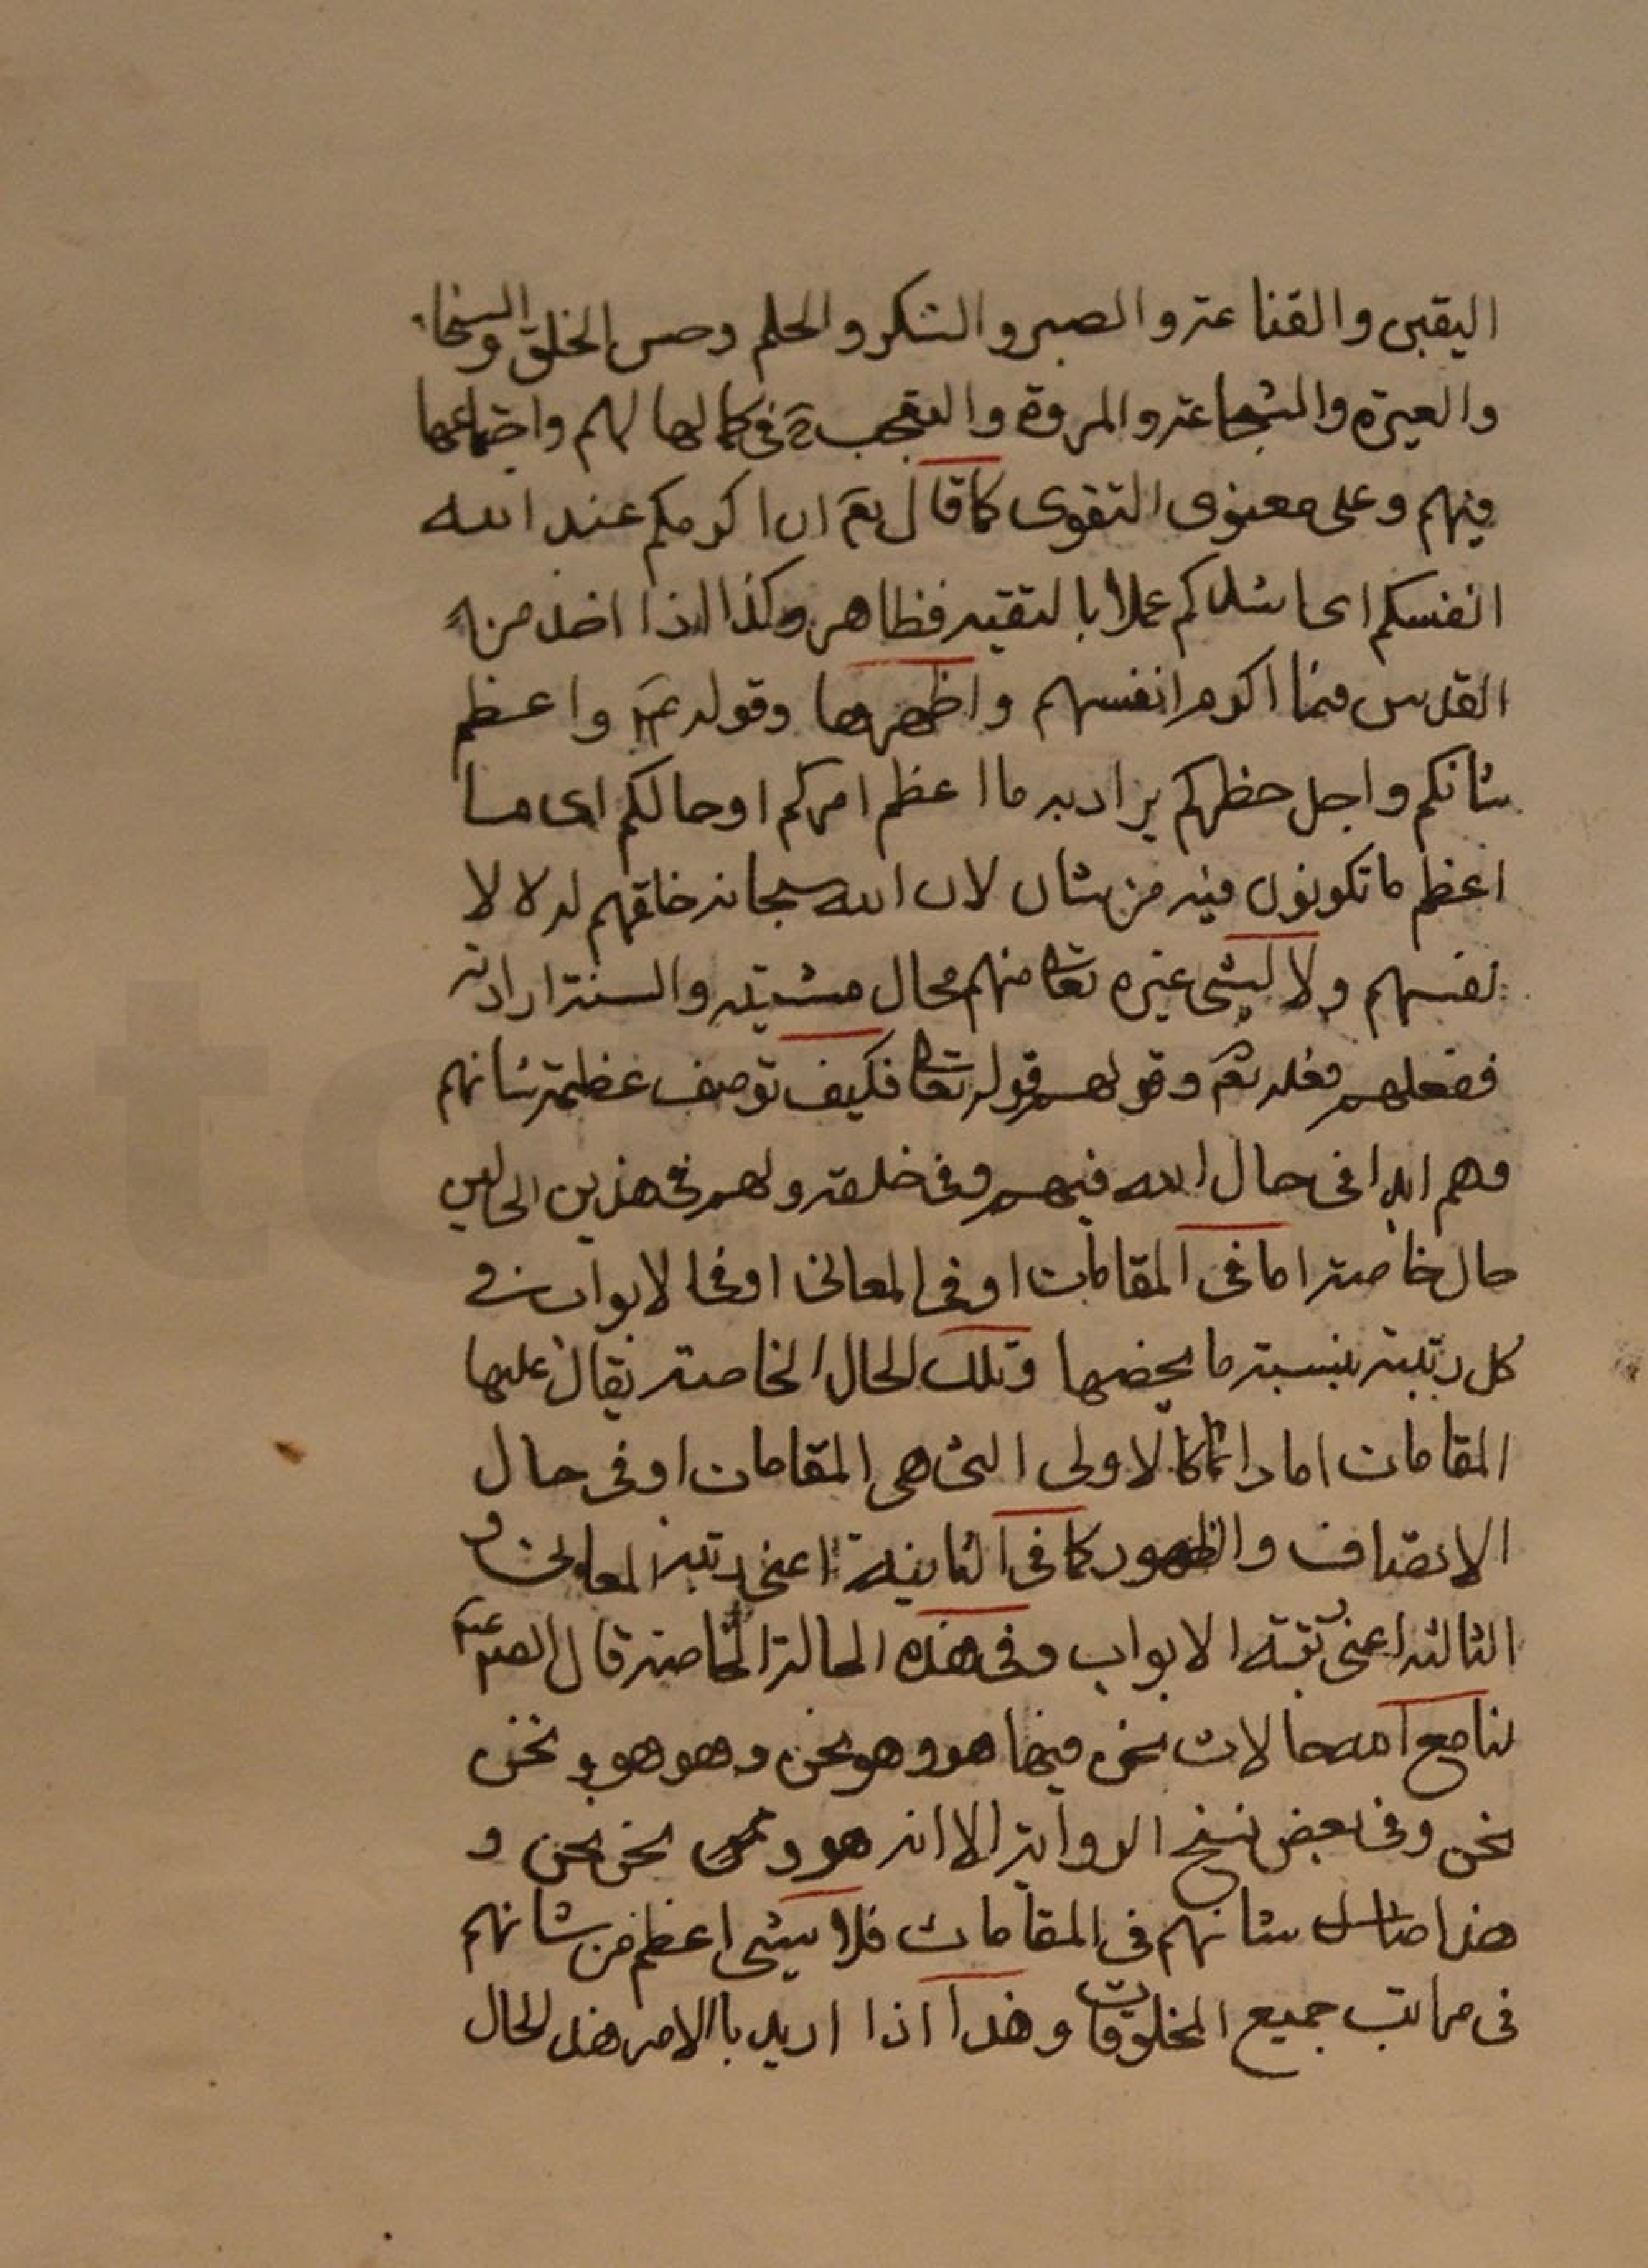 اليقين والقناعة والصبر والشكر والحلم وحسن الخلق والسخاء
والغيرة والشجاعة والمروة والتعجب في كمالها لهم واجتماعها
فيهم وعلى معنوى التقوى كما قال تع ان اكرمكم عند الله
انفسكم اى اشدكم عملا بالتقية فظاهر وكذا اذا اخذ من
القدس فما اكرم انفسهم واطهرها وقوله ع واعظم
شانكم واجل خطركم يراد به ما اعظم امركم او حالكم اى ما
اعظم ما تكونون فيه من شان لان الله سبحانه خلقهم له لا لا
نفسهم ولا لشى غيره تعالى منهم محال مشيته والسنة ارادته
ففعلهم فعله تع وقولهم قوله تعالى فكيف توصف عظمة شانهم
وهم ابدا فى حال الله فيهم وفى خلقه ولهم فى هذين الحالين
حال خاصة اما فى المقامات او فى المعانى او فى الابواب فى
كل رتبة بنسبة ما يخصها وتلك الحال الخاصة يقال عليها
المقامات اما دائما كالاولى التى هى المقامات او فى حال
الاتصاف والظهور كما فى الثانية اعنى رتبة المعانى و
الثالثة اعنى رتبة الابواب وفى هذه الحالة الخاصة قال الصم عم
لنا مع الله حالات نحن فيها هو وهو نحن وهو هو ونحن
نحن وفى بعض نسخ الرواية الا انه هو ونحن نحن و
هذا شانهم فى المقامات فلا شى اعظم من شانهم
فى مراتب جميع المخلوقات وهذا اذا اريد بالامر هذ الحال